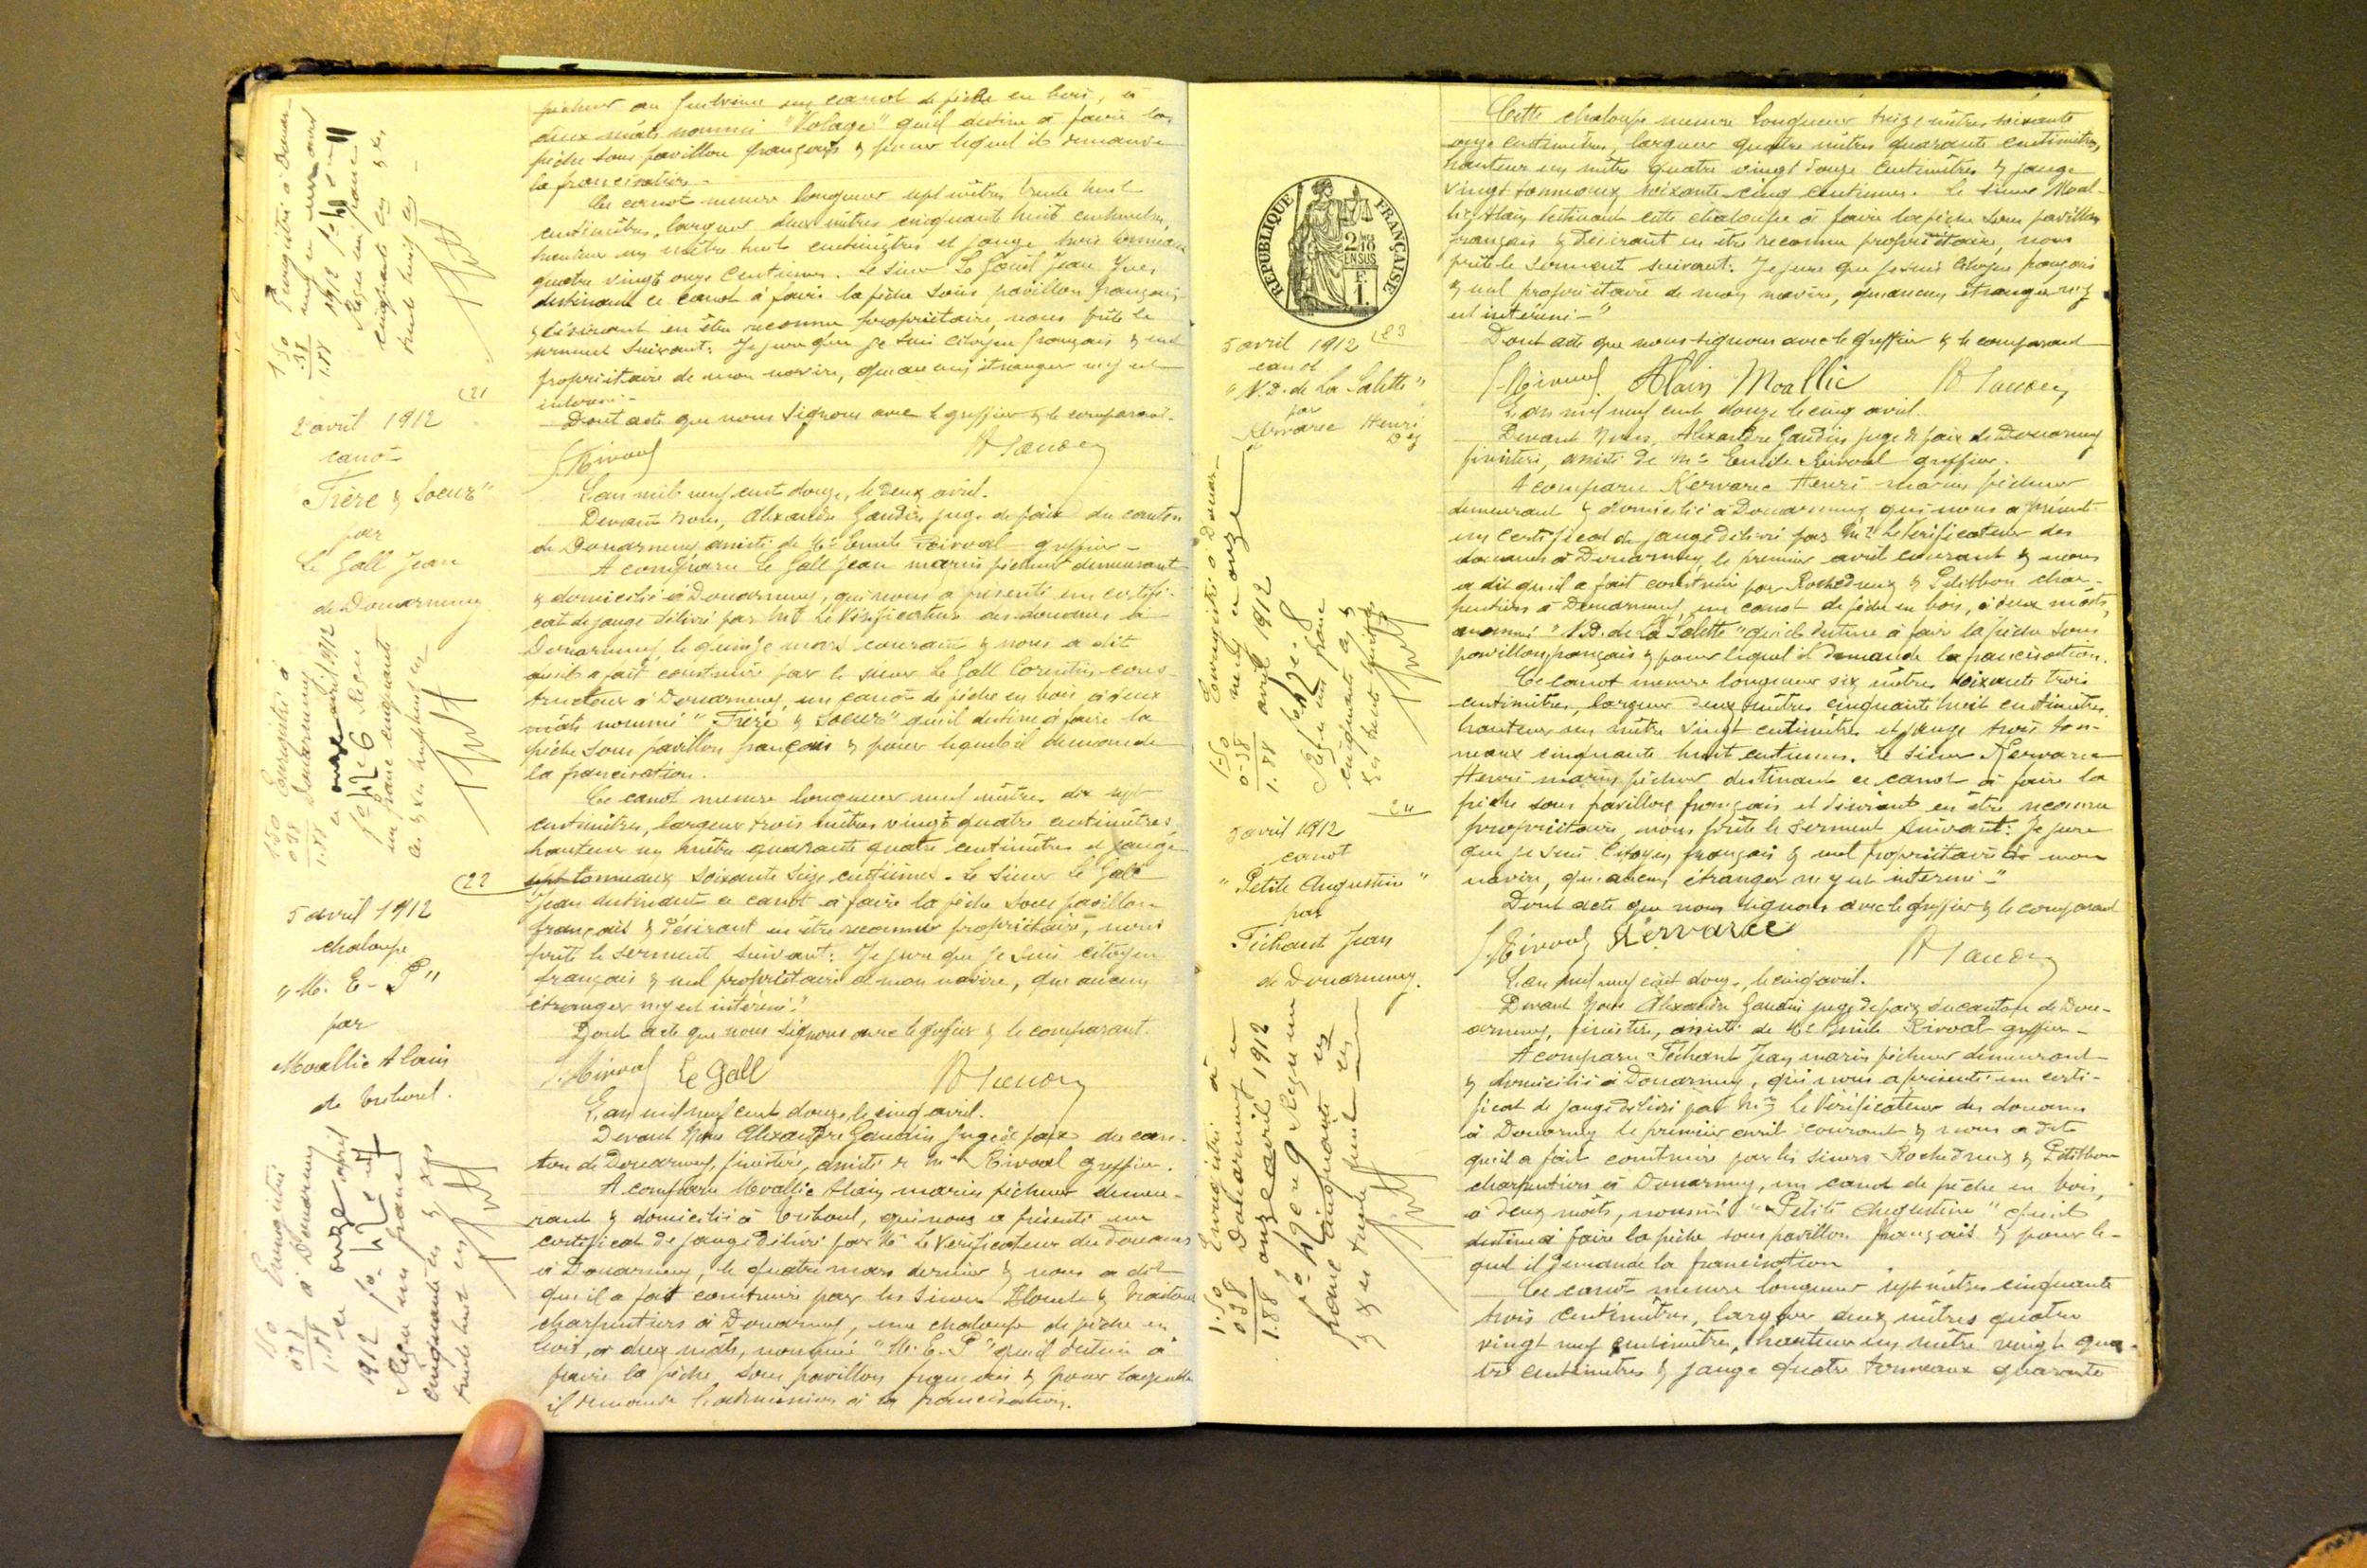 pêcheur au Guilvinec un canot de pêche en bois, à
deux mâts nommé "Volage" qu'il destine à faire la
pêche sous pavillon français & pour lequel il demande
la francisation -
Ce canot mesure longueur sept mètres trente huit
centimètres, largeur deux mètres cinquante huit centimètres,
hauteur un mètre huit centimètres et jauge trois tonneaux
quatre vingt onze centièmes. Le sieur Le Goïc Jean Yves
destinant ce canot à faire la pêche sous pavillon français
& désirant en être reconnu propriétaire, nous prête le
serment suivant: Je jure que je suis citoyen français & seul
propriétaire de mon navire, qu'aucun étranger n'y est
intéressé -
Dont acte que nous signons avec le greffier & le comparant.
Enregistré à Douar-
1912 fo
Reçu un franc
cinquante ces & xes
trente huit ces -
1.50
.38
1.88
21
2 avril 1912
canot
"Frère & Soeur"
par
Le Gall Jean
de Douarnenez
L'an mil neuf cent douze, le deux avril.
Devant nous, Alexandre Gaudin juge de paix du canton
de Douarnenez assisté de Me Emile Rivoal greffier -
A comparu Le Gall Jean marin pêcheur demeurant
& domicilié à Douarnenez, qui nous a présenté un certifi-
cat de jauge délivré par Mr le Vérificateur des douanes à
Douarnenez le quinze mars courant & nous a dit
qu'il a fait construire par le sieur Le Gall Corentin cons-
tructeur à Douarnenez, un canot de pêche en bois à deux
mâts nommé "Frère & Soeur" qu'il destine à faire la
pêche sous pavillon français & pour lequel il demande
la francisation.
Ce canot mesure longueur neuf mètres dix sept
centimètres, largeur trois mètres vingt quatre centimètres,
hauteur un mètre quarante quatre centimètres et jauge
sept tonneaux soixante seize centièmes. Le sieur Le Gall
Jean destinant ce canot à faire la pêche sous pavillon
français & désirant en être reconnu propriétaire, nous
prête le serment suivant: Je jure que je suis citoyen
français & seul propriétaire de mon navire, qu'aucun
étranger n'y est intéressé."
Dont acte que nous signons avec le greffier & le comparant.
Le Gall
Enregistré à
Douarnenez
le onze avril 1912
fo 42 c 6 Reçu
un franc cinquante
1.50
0.38
1.88
22
5 avril 1912
chaloupe
"M. E - P"
par
Moallic Alain
de Tréboul.
L'an mil neuf cent douze, le cinq avril.
Devant nous Alexandre Gaudin juge de paix du can-
ton de Douarnenez, finistère, assisté de Me Rivoal greffier.
A comparu Moallic Alain marin pêcheur demeu-
rant & domicilié à Tréboul, qui nous a présenté un
certificat de jauge délivré par Mr le Vérificateur des douanes
à Douarnenez, le quatre mars dernier & nous a dit
qu'il a fait construire par les sieurs
charpentiers à Douarnenez, une chaloupe de pêche en
bois, à deux mâts, nommée "M. E. P" qu'il destine à
faire la pêche sous pavillon français & pour laquelle
il demande l'admission à la francisation.
Enregistré
à Douarnenez
le onze avril
1912 fo 42 c 7
Reçu un franc
cinquante ces & xes
trente huit ces
1.50
0.38
1.88
RÉPUBLIQUE FRANÇAISE
2/10
EN SUS
F.
1.
Cette chaloupe mesure longueur treize mètres soixante
onze centimètres, largeur quatre mètres quarante centimètres,
hauteur un mètre quatre vingt douze centimètres & jauge
vingt tonneaux soixante cinq centièmes. Le sieur Moal-
lic Alain destinant cette chaloupe à faire la pêche sous pavillon
français & désirant en être reconnu propriétaire, nous
prête le serment suivant: Je jure que je suis citoyen français
& seul propriétaire de mon navire, qu'aucun étranger n'y
est intéressé -"
Dont acte que nous signons avec le greffier & le comparant
Alain Moallic
23
5 avril 1912
canot
"N.D. de La Salette"
par
Kervarec Henri
de Dez
L'an mil neuf cent douze le cinq avril.
Devant Nous, Alexandre Gaudin juge de paix de Douarnenez
finistère, assisté de Me Emile Rivoal greffier.
A comparu Kervarec Henri marin pêcheur
demeurant & domicilié à Douarnenez qui nous a présenté
un certificat de jauge délivré par Mr le Vérificateur des
douanes à Douarnenez, le premier avril courant & nous
a dit qu'il a fait construire par Rochedreux & Petitbon char-
pentiers à Douarnenez, un canot de pêche en bois, à deux mâts,
nommé "N.D. de La Salette" qu'il destine à faire la pêche sous
pavillon français & pour lequel il demande la francisation.
Ce canot mesure longueur six mètres soixante trois
centimètres, largeur deux mètres cinquante huit centimètres,
hauteur un mètre vingt centimètres et jauge trois ton-
neaux cinquante huit centièmes. Le sieur Kervarec
Henri marin pêcheur destinant ce canot à faire la
pêche sous pavillon français et désirant en être reconnu
propriétaire, nous prête le serment suivant: Je jure
que je suis citoyen français & seul propriétaire de mon
navire, qu'aucun étranger n'y est intéressé -"
Dont acte que nous signons avec le greffier & le comparant
Kervarec
Enregistré à Douar-
nenez le onze
avril 1912
fo 42 c. 8
Reçu un franc
cinquante ces &
1.50
0.38
1.88
24
5 avril 1912
canot
"Petite Augustine"
par
Féchant Jean
de Douarnenez.
L'an mil neuf cent douze, le cinq avril.
Devant Nous Alexandre Gaudin juge de paix du canton de Dou-
arnenez, finistère, assisté de Me Emile Rivoal greffier -
A comparu Féchant Jean marin pêcheur demeurant
& domicilié à Douarnenez, qui nous a présenté un certi-
ficat de jauge délivré par Mr le Vérificateur des douanes
à Douarnenez le premier avril courant & nous a dit
qu'il a fait construire par les sieurs Rochedreux & Petitbon
charpentiers à Douarnenez, un canot de pêche en bois,
à deux mâts, nommé "Petite Augustine" qu'il
destine à faire la pêche sous pavillon français & pour le-
quel il demande la francisation
Ce canot mesure longueur sept mètres cinquante
trois centimètres, largeur deux mètres quatre
vingt neuf centimètres, hauteur un mètre vingt qua-
tre centimètres & jauge quatre tonneaux quarante
Enregistré à
Douarnenez le
onze avril 1912
fo 42 c 9 Reçu un
franc cinquante ces
& xes trente huit ces
1.50
0.38
1.88